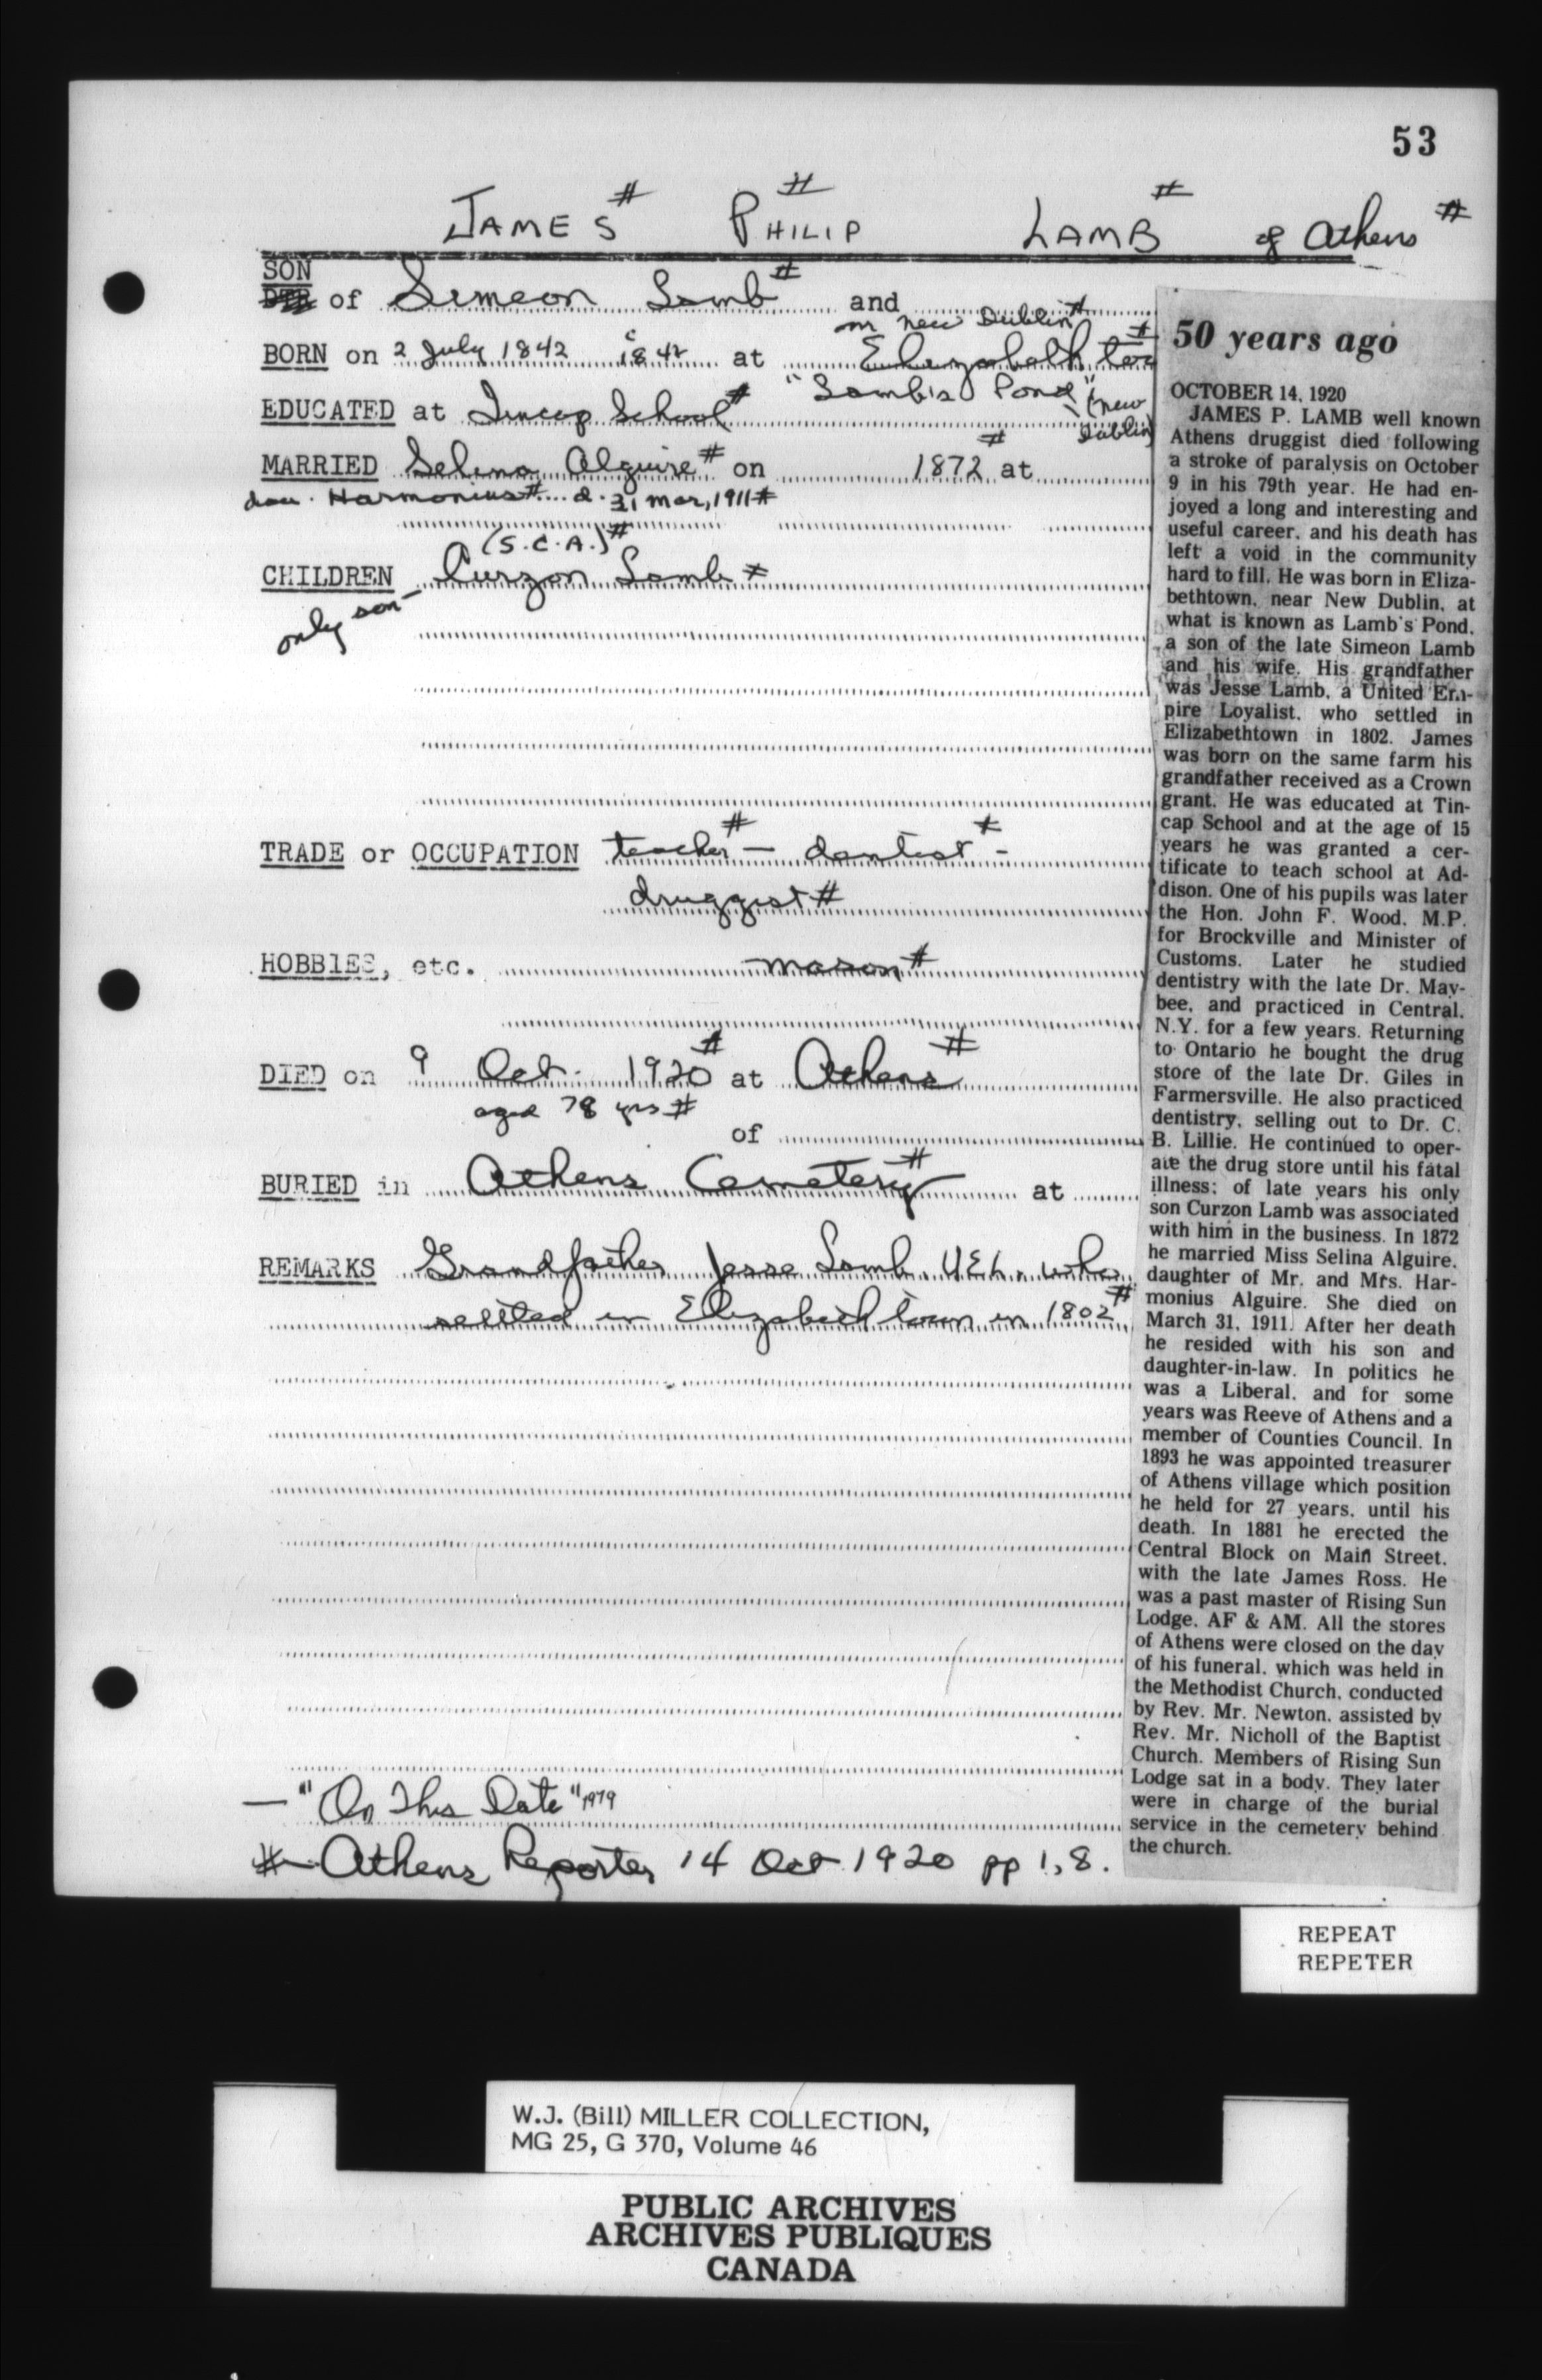 53
JAMES # PHILIP # LAMB # of Athens #
SON
DTR of Simeon Lamb # and
nr New Dublin #
BORN on 2 July 1842 c 1842 at Elizabethtow #
"Lamb's Pond"
EDUCATED at Tincap School # (New
Dublin)
MARRIED Selina Alguire # on 1872 # at
dau. Harmonius # d. 31 Mar, 1911 #
(S.C.A.) #
CHILDREN Curzon Lamb #
only son -
TRADE or OCCUPATION teacher # - dentist # -
druggist #
HOBBIES, etc. mason #
DIED on 9 Oct. 1920 # at Athens #
aged 78 yrs #
of
BURIED in Athens Cemetery # at
REMARKS Grandfather Jesse Lamb, U.E.L. who
settled in Elizabethtown in 1802 #
— "On This Date" 1979
# - Athens Reporter 14 Oct 1920 pp 1, 8.
50 years ago
OCTOBER 14, 1920
JAMES P. LAMB well known
Athens druggist died following
a stroke of paralysis on October
9 in his 79th year. He had en-
joyed a long and interesting and
useful career, and his death has
left a void in the community
hard to fill. He was born in Eliza-
bethtown, near New Dublin, at
what is known as Lamb's Pond,
a son of the late Simeon Lamb
and his wife. His grandfather
was Jesse Lamb, a United Em-
pire Loyalist, who settled in
Elizabethtown in 1802. James
was born on the same farm his
grandfather received as a Crown
grant. He was educated at Tin-
cap School and at the age of 15
years he was granted a cer-
tificate to teach school at Ad-
dison. One of his pupils was later
the Hon. John F. Wood, M.P.
for Brockville and Minister of
Customs. Later he studied
dentistry with the late Dr. May-
bee, and practiced in Central,
N.Y. for a few years. Returning
to Ontario he bought the drug
store of the late Dr. Giles in
Farmersville. He also practiced
dentistry, selling out to Dr. C.
B. Lillie. He continued to oper-
ate the drug store until his fatal
illness; of late years his only
son Curzon Lamb was associated
with him in the business. In 1872
he married Miss Selina Alguire,
daughter of Mr. and Mrs. Har-
monius Alguire. She died on
March 31, 1911. After her death
he resided with his son and
daughter-in-law. In politics he
was a Liberal, and for some
years was Reeve of Athens and a
member of Counties Council. In
1893 he was appointed treasurer
of Athens village which position
he held for 27 years, until his
death. In 1881 he erected the
Central Block on Main Street,
with the late James Ross. He
was a past master of Rising Sun
Lodge, AF & AM. All the stores
of Athens were closed on the day
of his funeral, which was held in
the Methodist Church, conducted
by Rev. Mr. Newton, assisted by
Rev. Mr. Nicholl of the Baptist
Church. Members of Rising Sun
Lodge sat in a body. They later
were in charge of the burial
service in the cemetery behind
the church.
REPEAT
REPETER
W.J. (Bill) MILLER COLLECTION,
MG 25, G 370, Volume 46
PUBLIC ARCHIVES
ARCHIVES PUBLIQUES
CANADA